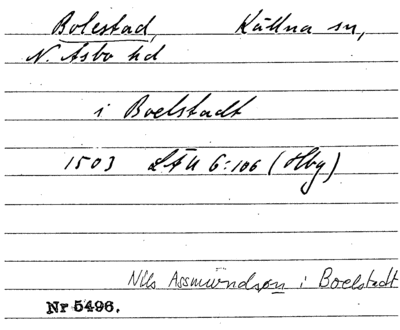 Bolestad, Källna sn,
N. Åsbo hd
i Boelstadt
1503 LÄU 6:106 (Hbg)
Nils Assmundson i Boelstadt
Nr 5496.